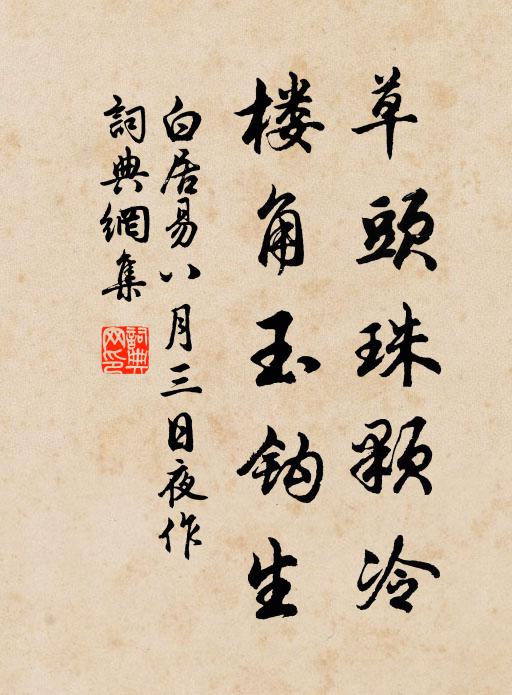 草頭珠顆冷
楼角玉鈎生
白居易八月三日夜作
詞典網集
詞典網印